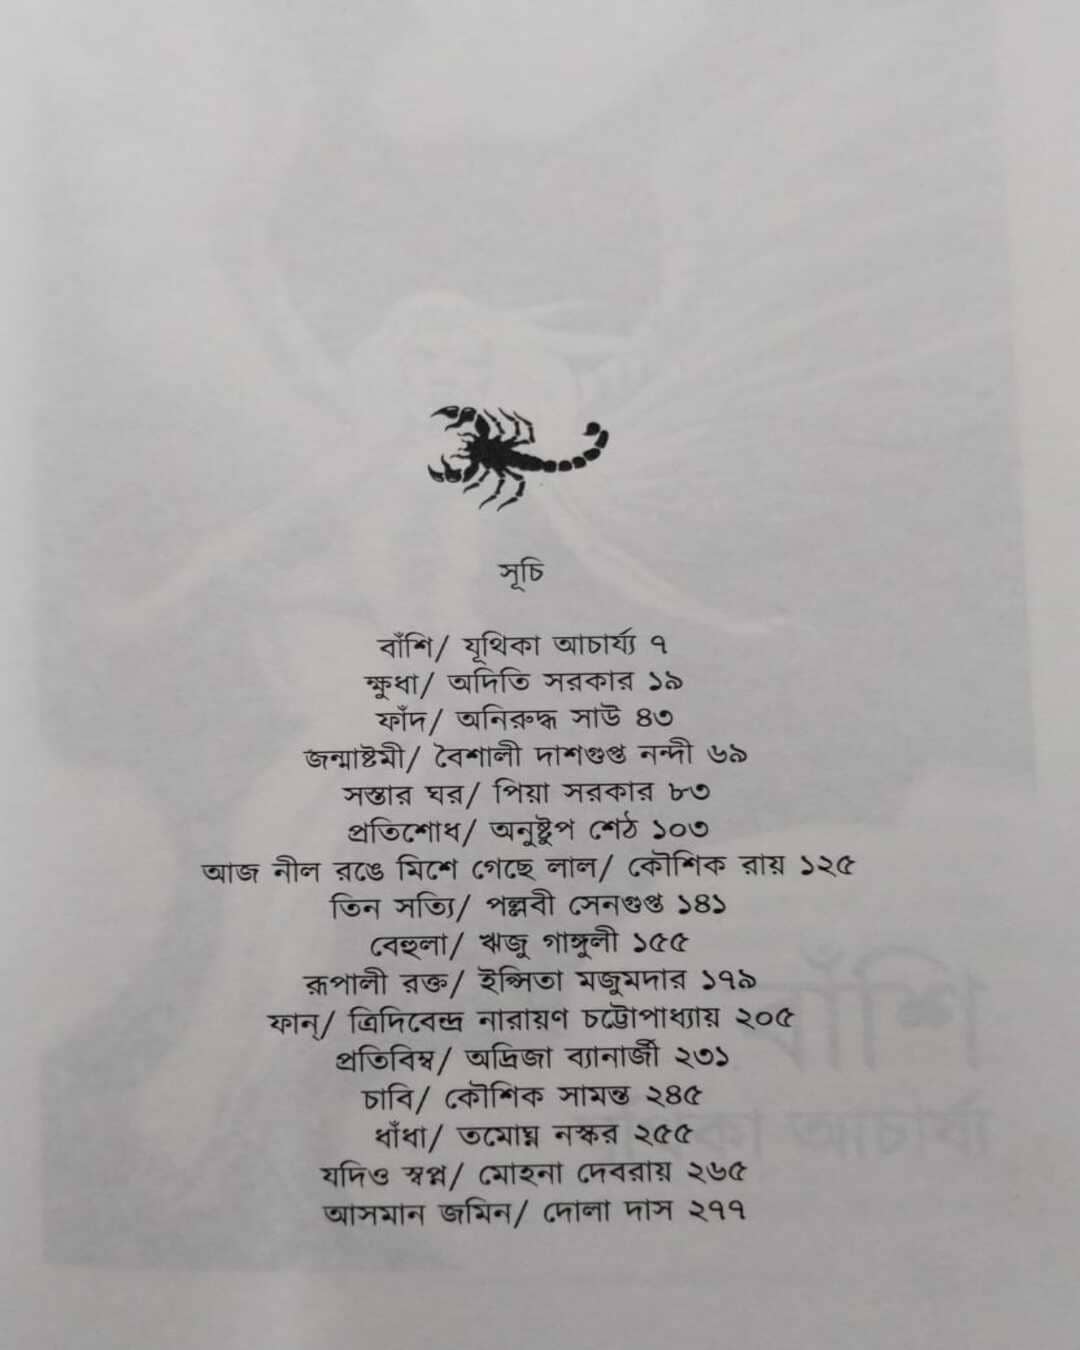 সূচি
বাঁশি/ যূথিকা আচার্য্য ৭
ক্ষুধা/ অদিতি সরকার ১৯
ফাঁদ/ অনিরুদ্ধ সাউ ৪৩
জন্মাষ্টমী/ বৈশালী দাশগুপ্ত নন্দী ৬৯
সস্তার ঘর/ পিয়া সরকার ৮৩
প্রতিশোধ/ অনুষ্টুপ শেঠ ১০৩
আজ নীল রঙে মিশে গেছে লাল/ কৌশিক রায় ১২৫
তিন সত্যি/ পল্লবী সেনগুপ্ত ১৪১
বেহুলা/ ঋজু গাঙ্গুলী ১৫৫
রূপালী রক্ত/ ইপ্সিতা মজুমদার ১৭৯
ফান্/ ত্রিদিবেন্দ্র নারায়ণ চট্টোপাধ্যায় ২০৫
প্রতিবিম্ব/ অদ্রিজা ব্যানার্জী ২৩১
চাবি/ কৌশিক সামন্ত ২৪৫
ধাঁধা/ তমোঘ্ন নস্কর ২৫৫
যদিও স্বপ্ন/ মোহনা দেবরায় ২৬৫
আসমান জমিন/ দোলা দাস ২৭৭
বাঁশি
যূথিকা আচার্য্য